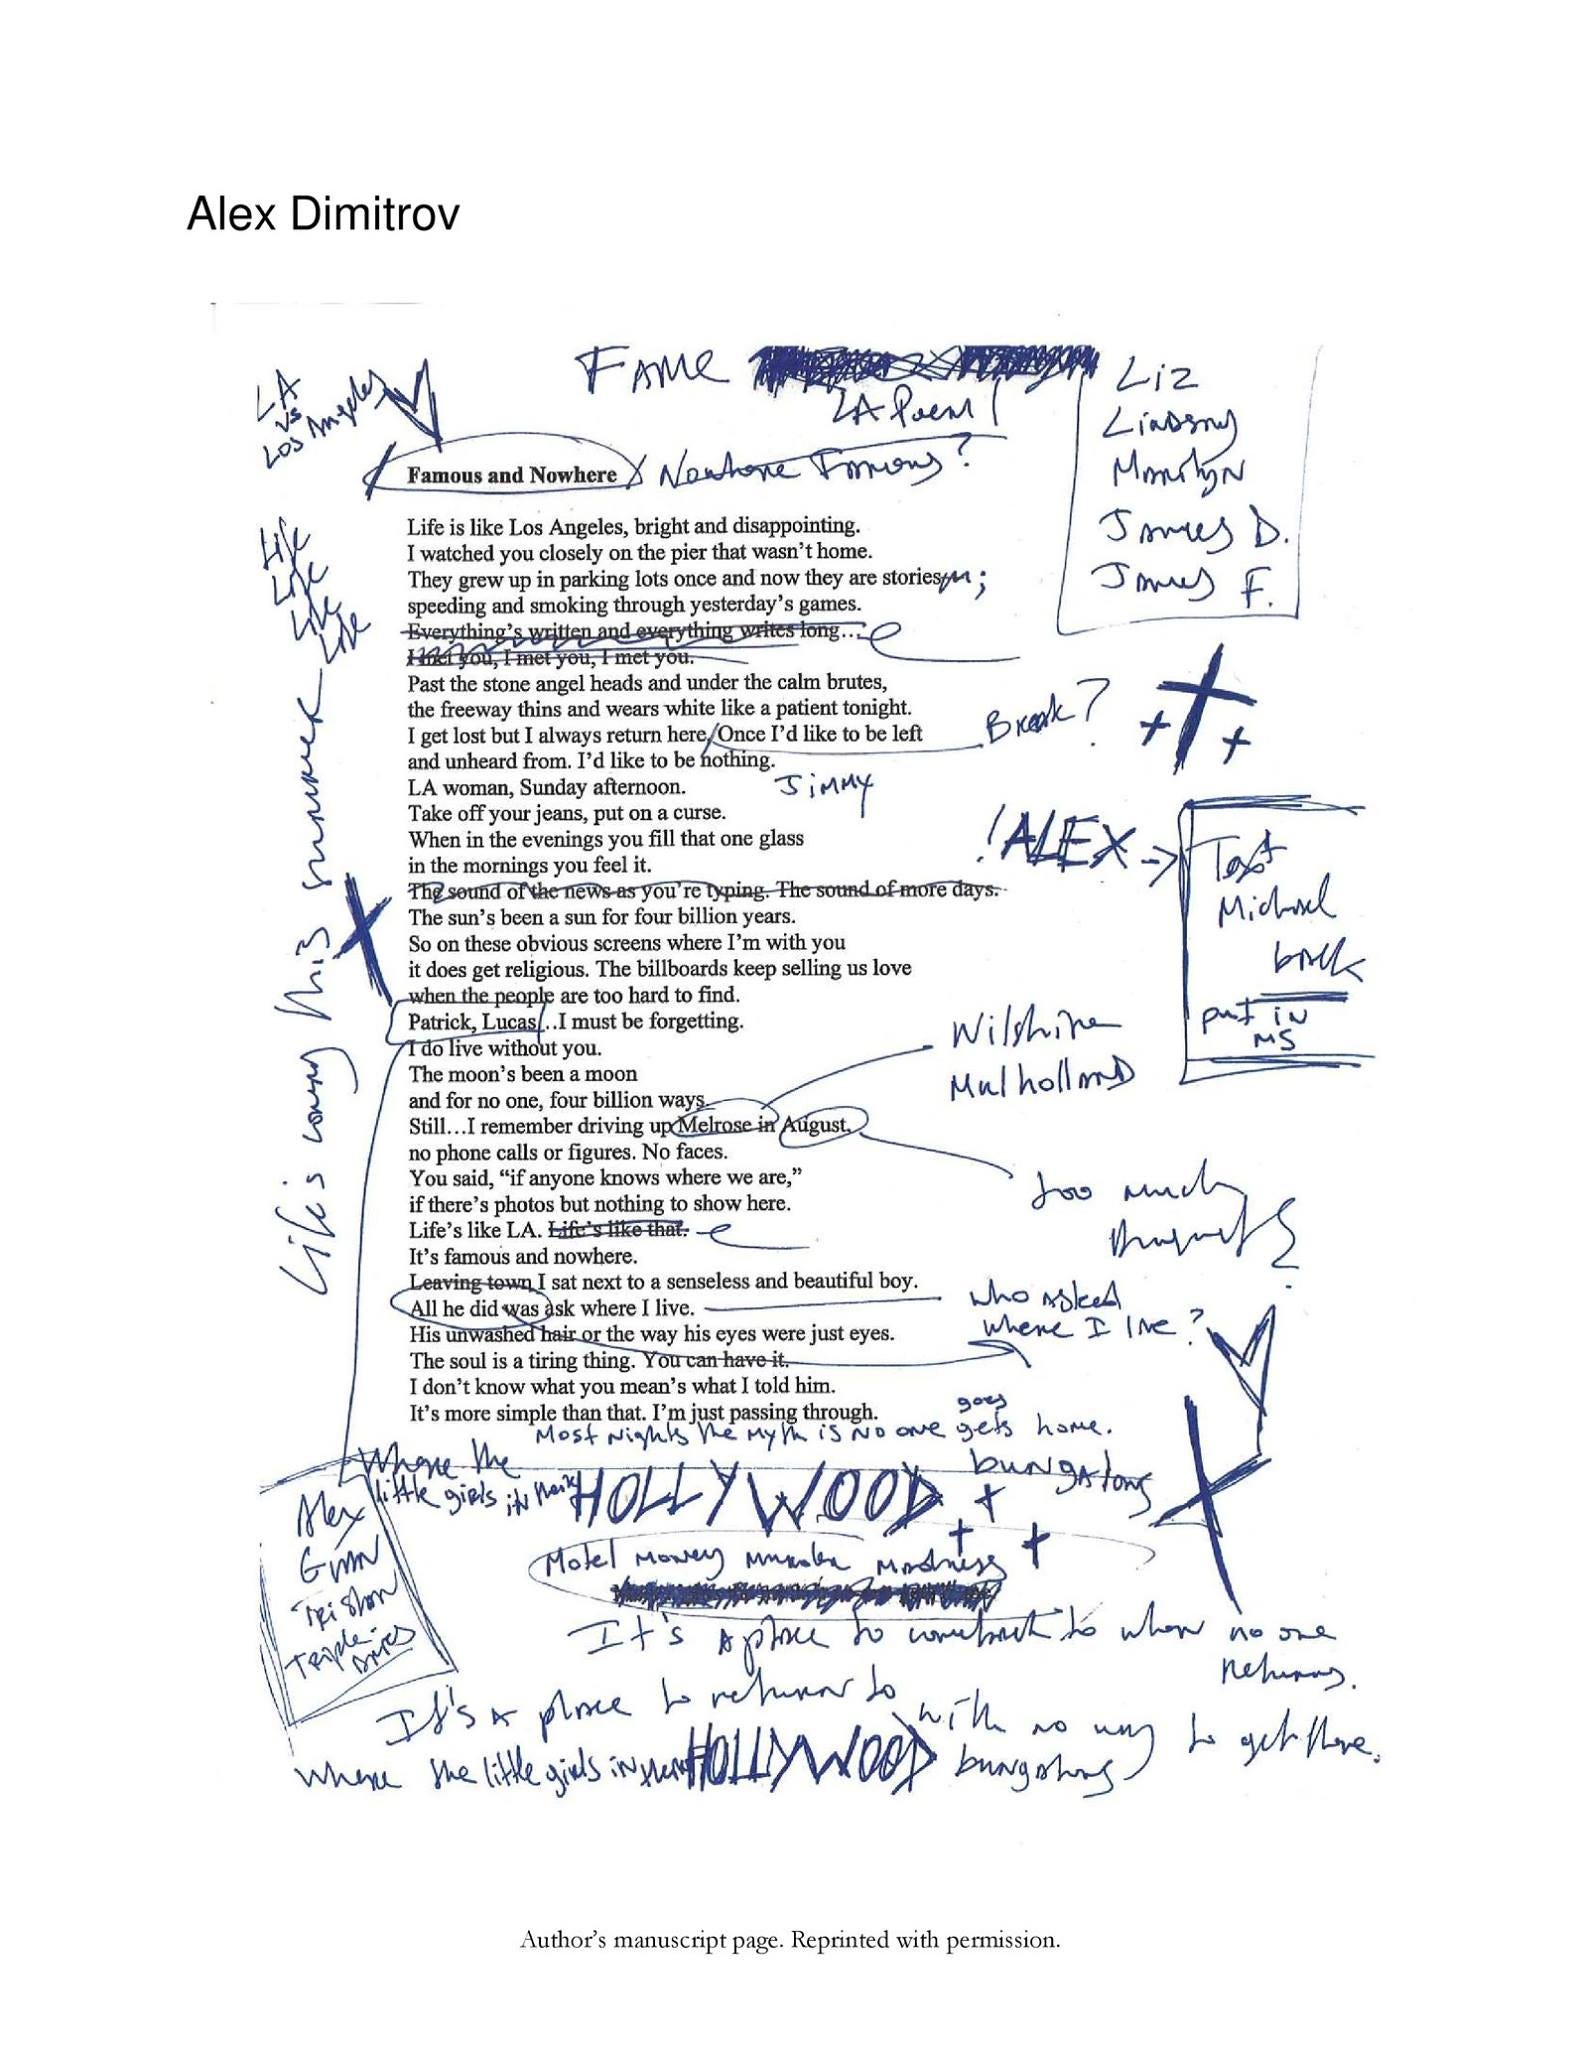 Alex Dimitrov
FAME
LA Poem!
LA
vs
Los Angeles
Liz
Lindsay
Marilyn
James D.
James F.
Famous and Nowhere
Nowhere Famous?
Life is like Los Angeles, bright and disappointing.
I watched you closely on the pier that wasn't home.
They grew up in parking lots once and now they are stories
speeding and smoking through yesterday's games.
Everything's written and everything writes long…
I met you, I met you, I met you.
Past the stone angel heads and under the calm brutes,
the freeway thins and wears white like a patient tonight.
I get lost but I always return here. Once I'd like to be left
Break?
and unheard from. I'd like to be nothing.
LA woman, Sunday afternoon.
JIMMY
Take off your jeans, put on a curse.
When in the evenings you fill that one glass
in the mornings you feel it.
The sound of the news as you're typing. The sound of more days.
The sun's been a sun for four billion years.
So on these obvious screens where I'm with you
it does get religious. The billboards keep selling us love
when the people are too hard to find.
Patrick, Lucas…I must be forgetting.
I do live without you.
The moon's been a moon
and for no one, four billion ways.
Still…I remember driving up Melrose in August,
no phone calls or figures. No faces.
You said, “if anyone knows where we are,”
if there's photos but nothing to show here.
Life's like LA. Life's like that.
It's famous and nowhere.
Leaving town I sat next to a senseless and beautiful boy.
All he did was ask where I live.
His unwashed hair or the way his eyes were just eyes.
The soul is a tiring thing. You can have it.
I don't know what you mean's what I told him.
It's more simple than that. I'm just passing through.
Life
Life
Life
Life
Life's long this summer
!ALEX ->
Text
Michael
back
put in
MS
Wilshire
Mulholland
too much
August?
who asked
where I live?
goes
Most Nights the Myth is No one gets home.
Where the
little girls in their HOLLYWOOD
bungalows
Motel Money Murder Madness
Alex
Tristan
Triple-
Aries
It's a place to to when no one
returns.
It's a place to return to
with no way to get there.
where the little girls in their HOLLYWOOD bungalows
Author's manuscript page. Reprinted with permission.